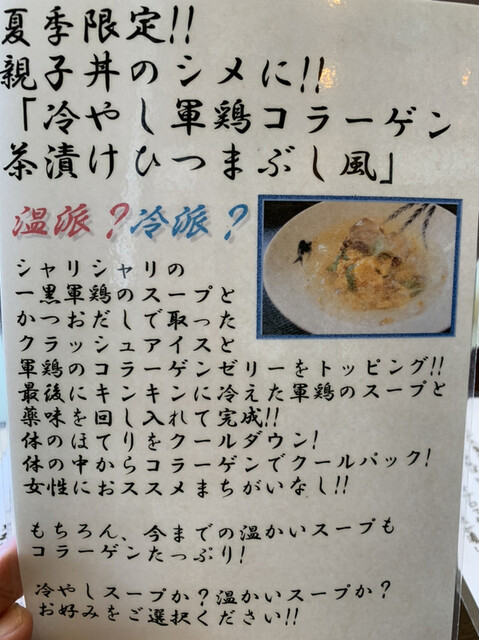 夏季限定!!
親子丼のシメに!!
「冷やし軍鶏コラーゲン
茶漬けひつまぶし風」
温派?冷派?
シャリシャリの
一黒軍鶏のスープと
かつおだしで取った
クラッシュアイスと
軍鶏のコラーゲンゼリーをトッピング!!
最後にキンキンに冷えた軍鶏のスープと
薬味を回し入れて完成!!
体のほてりをクールダウン!
体の中からコラーゲンでクールパック!
女性におススメまちがいなし!!
もちろん、今までの温かいスープも
コラーゲンたっぷり!
冷やしスープか?温かいスープか?
お好みをご選択ください!!